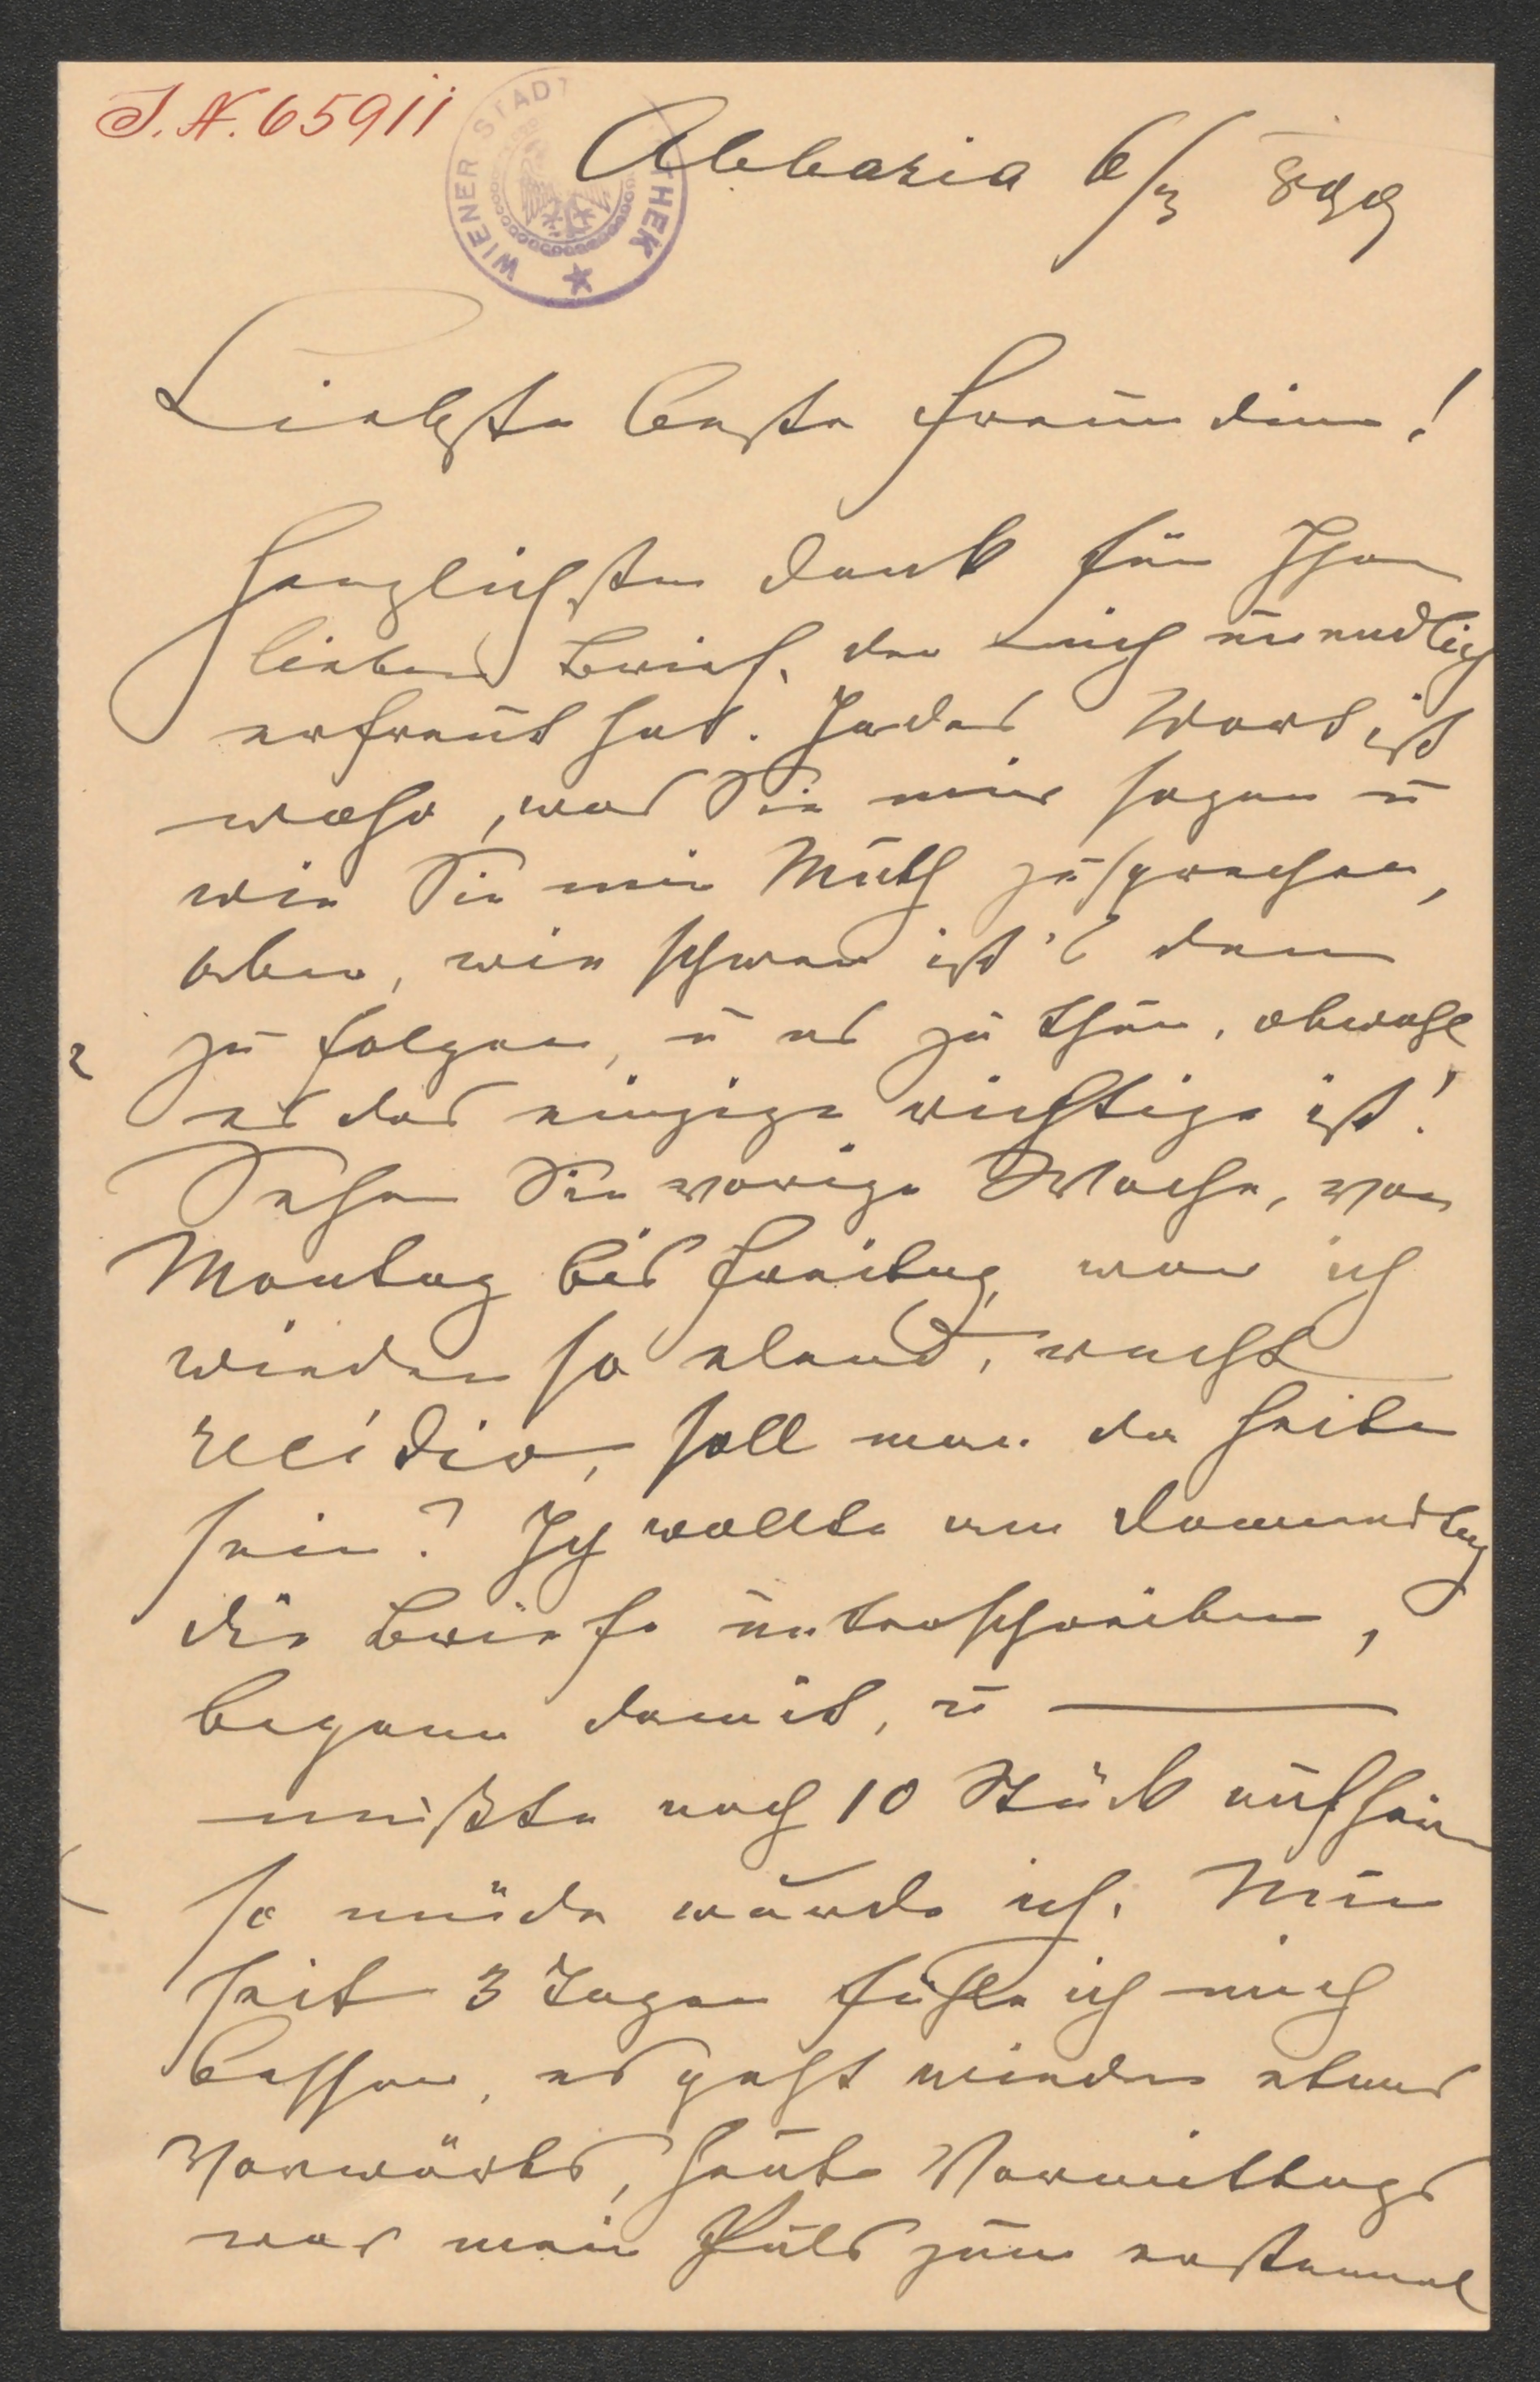 J.N. 65911
WIENER STADT THEK
Abbazia 6/3 899
Liebste beste Freundin!
Herzlichsten Dank für Ihren
lieben Brief, der mich unendlich
erfreut hat. Jedes Wort ist
wahr, was Sie mir sagen u
wie Sie mir Muth zusprechen,
aber, wie schwer ist's dem
zu folgen, u es zu thun, obwohl
es das einzige richtige ist!
Sehen Sie vorige Woche, von
Montag bis Freitag, war ich
wieder so elend, recht
recidiv, soll man da heiter
sein? Ich wollte am Donnerstag
die Briefe unterschreiben,
begann damit, u —
mußte nach 10 Stück aufhören
so müde wurde ich. Nun
seit 3 Tagen fühle ich mich
besser, es geht wieder etwas
vorwärts, heute Vormittags
war mein Puls zum erstenmal